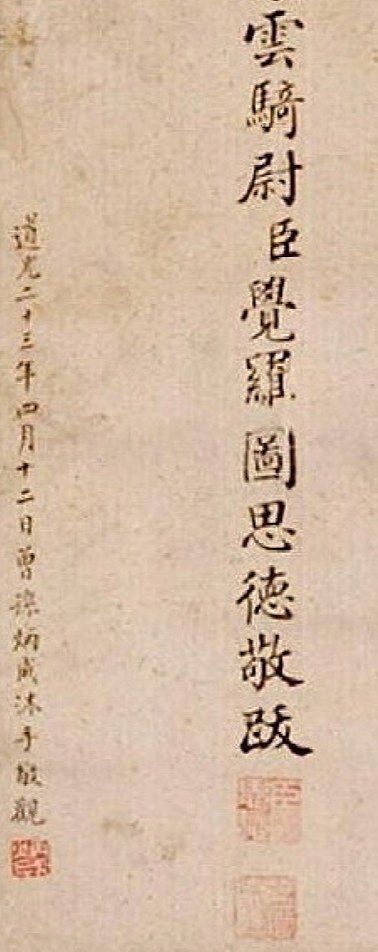 雲騎尉臣覺羅圖思德敬跋
道光二十三年四月十二日曾孫炳成沐手敬觀